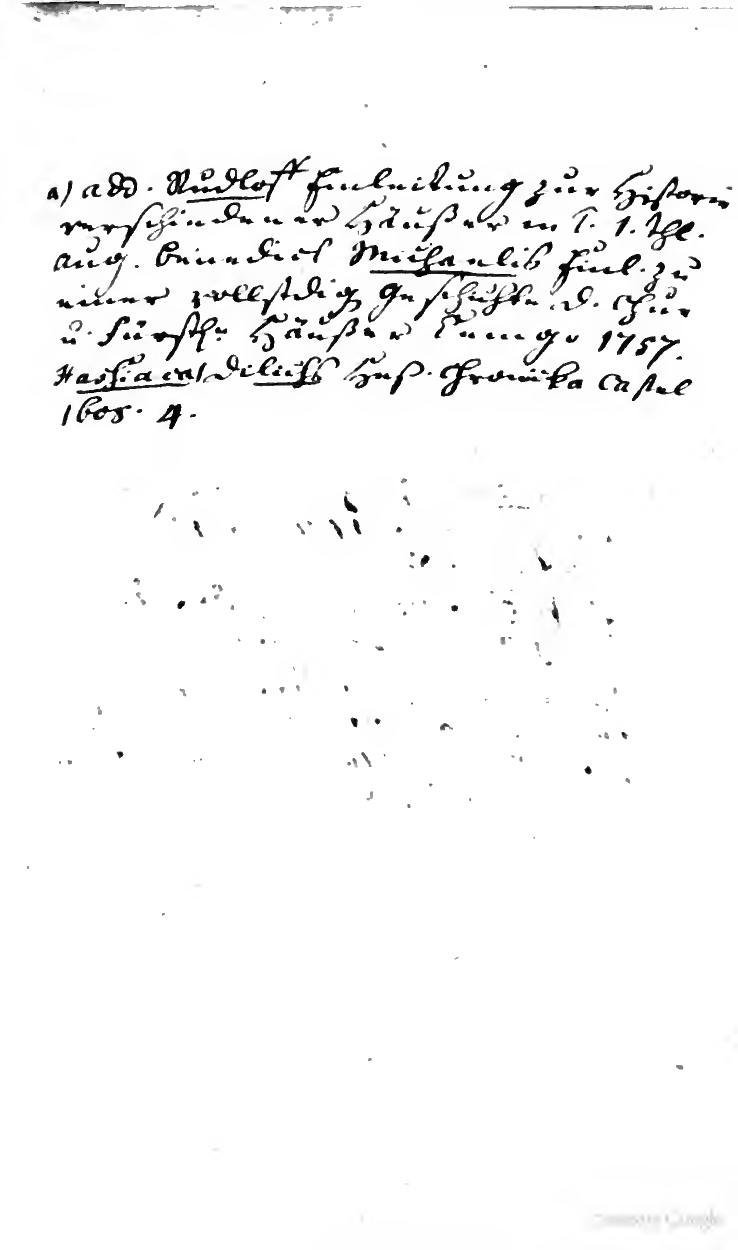 a) add. Rudloff Einleitung zur Historie
verschiedener Häußer in T. 1. Thl.
Aug. Benedict Michaelis Einl. zu
einer vollstdig Geschichte d. Chur
u. Fürstl. Häußer Lemgo 1757.
Dilichs Heß. Chronicka Cassel
1605. 4.